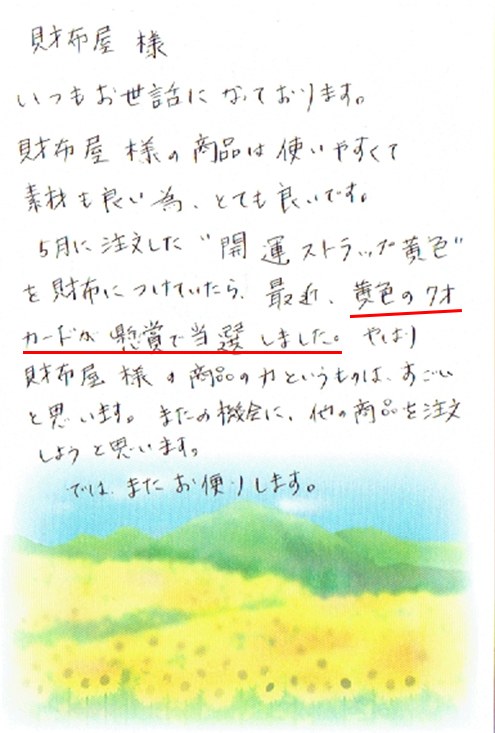 財布屋 様
いつもお世話になっております。
財布屋 様の商品は使いやすくて
素材も良い為、とても良いです。
5月に注文した "開運ストラップ黄色"
を財布につけていたら、最近、黄色のクオ
カードが懸賞で当選しました。やはり
財布屋 様の商品の力というものは、すごい
と思います。またの機会に、他の商品を注文
しようと思います。
では、またお便りします。